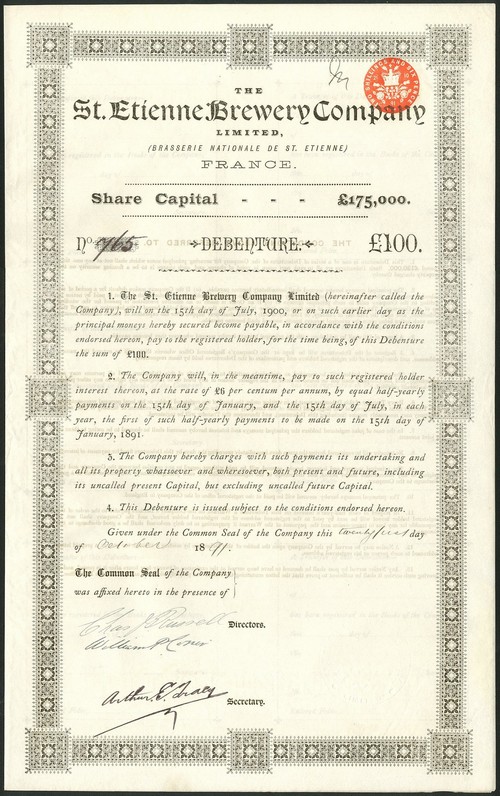 THE
St. Etienne Brewery Company
LIMITED,
(BRASSERIE NATIONALE DE ST. ETIENNE)
FRANCE.
Share Capital - - - £175,000.
No. 765 DEBENTURE. £100.
1. The St. Etienne Brewery Company Limited (hereinafter called the
Company), will on the 15th day of July, 1900, or on such earlier day as the
principal moneys hereby secured become payable, in accordance with the conditions
endorsed hereon, pay to the registered holder, for the time being, of this Debenture
the sum of £100.
2. The Company will, in the meantime, pay to such registered holder
interest thereon, at the rate of £6 per centum per annum, by equal half-yearly
payments on the 15th day of January, and the 15th day of July, in each
year, the first of such half-yearly payments to be made on the 15th day of
January, 1891.
3. The Company hereby charges with such payments its undertaking and
all its property whatsoever and wheresoever, both present and future, including
its uncalled present Capital, but excluding uncalled future Capital.
4. This Debenture is issued subject to the conditions endorsed hereon.
Given under the Common Seal of the Company this twenty first day
of October 1891.
The Common Seal of the Company
was affixed hereto in the presence of
Chas J Russell Directors.
William
Arthur E. Secretary.